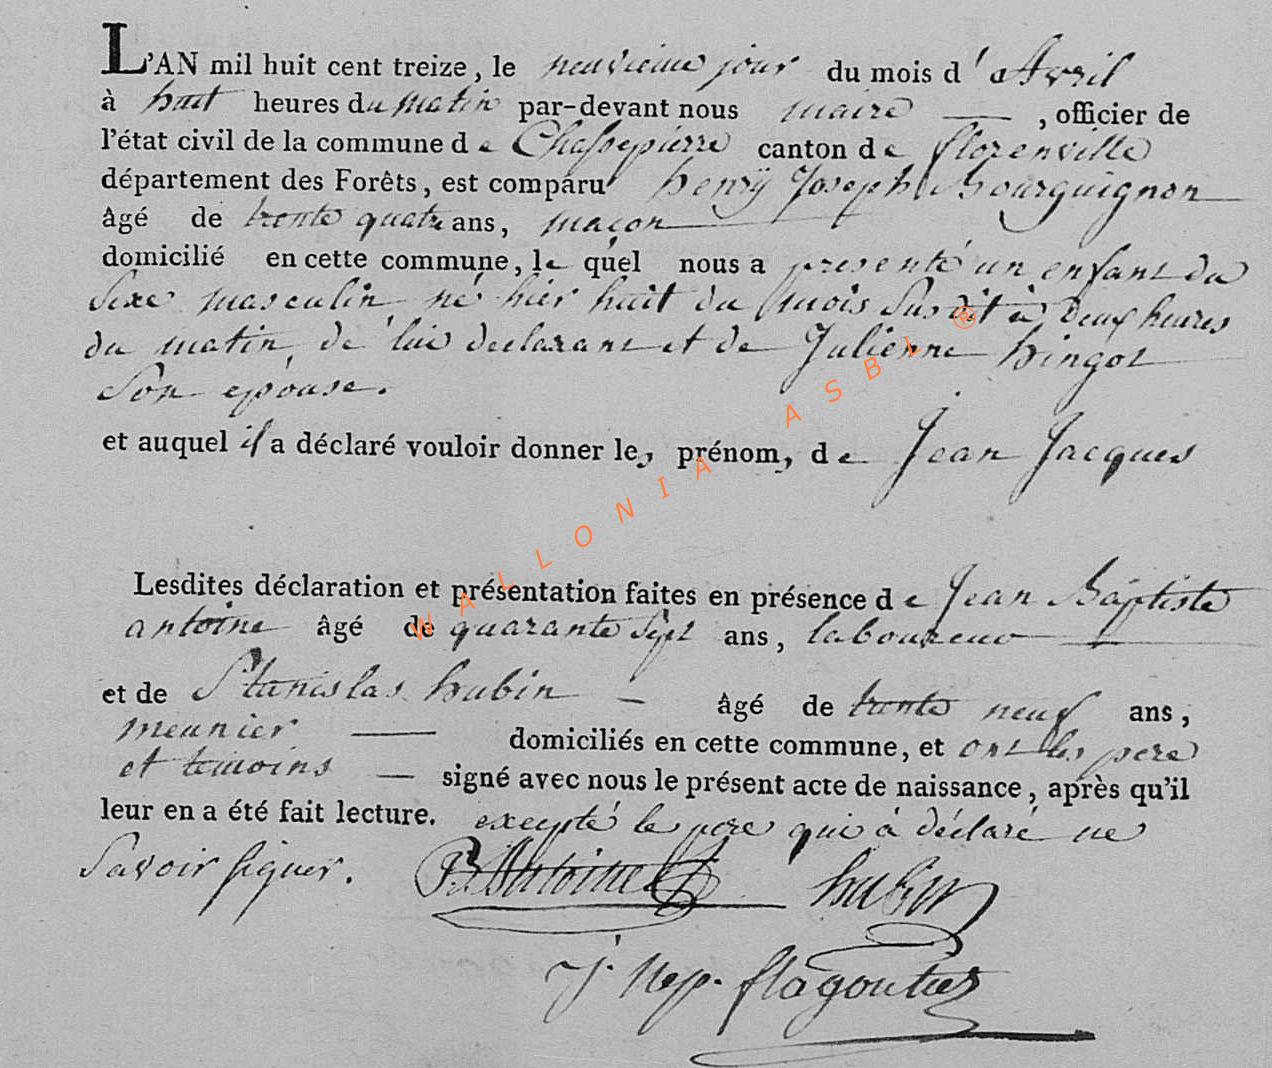 L'AN mil huit cent treize, le neuvieme jour du mois d'Avril
à huit heures du matin par-devant nous maire — , officier de
l'état civil de la commune de Chassepierre canton de florenville
département des Forêts, est comparu henry Joseph Bourguignon
âgé de trente quatre ans, maçon
domicilié en cette commune, le quel nous a presenté un enfant du
Sexe masculin, né hier huit du mois Susdit à Deux heures
du matin, de lui declarant et de Julienne hingot
Son epouse.
et auquel il a déclaré vouloir donner les prénoms de Jean Jacques
Lesdites déclaration et présentation faites en présence de Jean Baptiste
antoine âgé de quarante sept ans, laboureur
et de Stanislas hubin — âgé de trente neuf ans,
meunier — domiciliés en cette commune, et ont les pere
et temoins — signé avec nous le présent acte de naissance, après qu'il
leur en a été fait lecture. excepté le pere qui à déclaré ne
Savoir signer. Antoine hubin
J. Nep. flagontier
WALLONIA ASBL ®